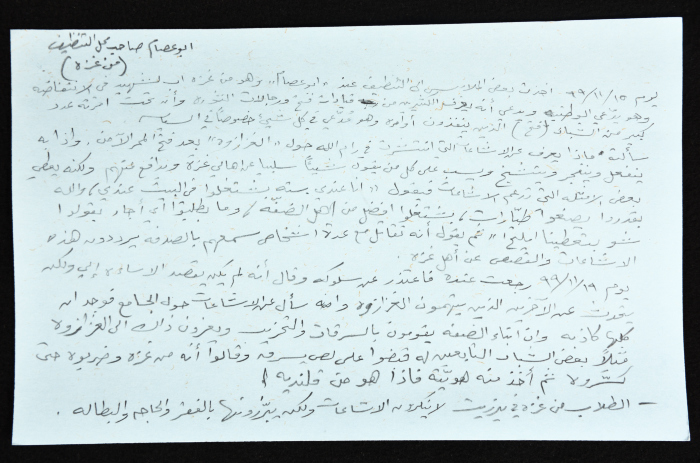 ابو عصام صاحب محل التنظيف
(من غزة)
يوم ٩٩/١١/١٥ اخذت بعض الملابس الى التنظيف عند "ابو عصام" وهو من غزة اب لشهيد في الانتفاضة
وهو يدعي الوطنية ويدعي أنه يعرف الكثير من قيادات فتح ورجالات الثورة وأنه تحت امرته عدد
كبير من الشباب (فتح) الذين ينفذون أوامره وهو في كل شيء خصوصاً في السياسة
سألته ماذا يعرف عن الاشاعات التي انتشرت في رام الله حول "الغزازوة" بعد فتح الممر الآمن. واذا به
ينفعل وينفجر ويتشنج ويسب على كل من يقول شيئاً سلبيا عن اهالي غزة ويدافع عنهم ولكنه يعطي
بعض الامثلة التي تدعم الاشاعات فيقول "انا عندي ستة بشتغلوا في البيت عندي، والله
بقدروا يصنعوا طيارات، بشتغلوا افضل من اهل الضفة، وما بطلبوا أي أجار بقولوا
شو بتعطينا ابليح" ثم يقول أنه تقابل مع عدة اشخاص سمعهم بالصدفة يرددون هذه
الاشاعات والقصص عن أهل غزة.
يوم ٩٩/١١/١٩ رجعت عنده فاعتذر عن سلوكه وقال أنه لم يكن يقصد الاساءة إلي ولكن
يتحدث عن الآخرين الذين يتهمون الغزازوة وانه سأل عن الاشاعات حول الجامع فوجد ان
كلها كاذبة وان ابناء الضفة يقومون بالسرقات والتخريب ويعزون ذلك الى الغزازوة
فمثلاً بعض الشباب التابعين له قبضوا على لص يسرق وقالوا أنه من غزة وضربوه حتى
كسّروه ثم أخذ منه هويته فاذا هو من قلنديه!
- الطلاب من غزة في بيرزيت لا ينكرون الاشاعات ولكن يبررونها بالفقر والحاجة والبطالة.